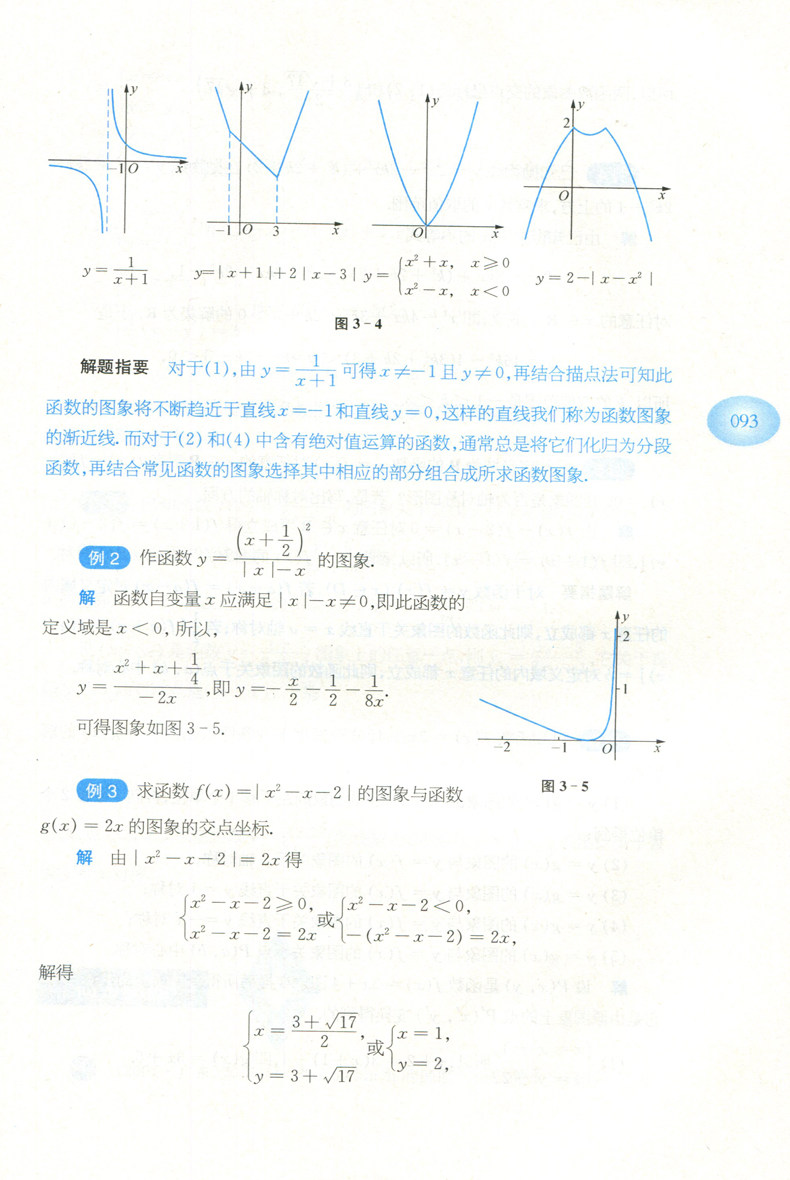 y
y
y
y
2
-1 O x
-1 O 3 x
O x
O x
y = 1/(x+1)
y=| x+1 |+2 | x-3 |
y = { x²+x, x⩾0
x²-x, x<0
y = 2-| x-x² |
图 3-4
解题指要 对于(1),由 y = 1/(x+1) 可得 x ≠-1 且 y ≠ 0,再结合描点法可知此
函数的图象将不断趋近于直线 x =-1 和直线 y = 0,这样的直线我们称为函数图象
的渐近线. 而对于(2) 和(4) 中含有绝对值运算的函数,通常总是将它们化归为分段
函数,再结合常见函数的图象选择其中相应的部分组合成所求函数图象.
093
例 2 作函数 y = (x+1/2)²/(| x |-x) 的图象.
解 函数自变量 x 应满足 | x |-x ≠ 0,即此函数的
定义域是 x < 0, 所以,
y = (x²+x+1/4)/(-2x),即 y =-x/2-1/2-1/(8x).
可得图象如图 3-5.
y
2
1
-2 -1 O x
图 3-5
例 3 求函数 f(x) =| x²-x-2 | 的图象与函数
g(x) = 2x 的图象的交点坐标.
解 由 | x²-x-2 |= 2x 得
{ x²-x-2 ⩾ 0,
x²-x-2 = 2x
或
{ x²-x-2 < 0,
-(x²-x-2) = 2x,
解得
{ x = (3+√17)/2,
y = 3+√17
或
{ x = 1,
y = 2,